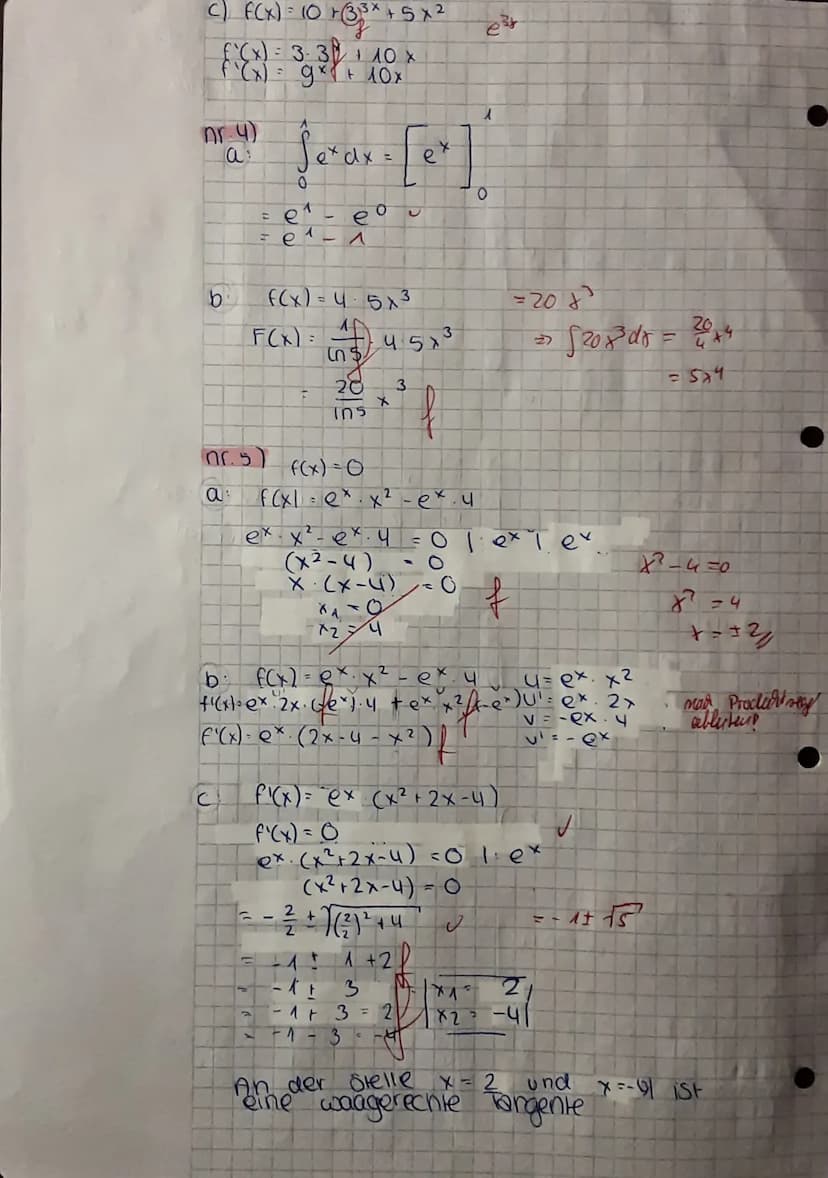 c) f(x) = 10 + 3^3x + 5x² e^3x
f'(x) = 3 · 3 f + 10x
f'(x) = 9^x f + 10x
nr. 4)
a: ∫₀¹ e^x dx = [e^x]₀¹
= e¹ - e⁰ ✓
= e¹ - 1
b: f(x) = 4 · 5x³ = 20x³
F(x) = 1/ln5 · 4·5x³ ⇒ ∫20x³dx = 20/4 x⁴
= 20/ln5 x³ f = 5x⁴
nr. 5) f(x) = 0
a: f(x) = e^x · x² - e^x · 4
e^x · x² - e^x · 4 = 0 | : e^x | : e^x
(x² - 4) = 0 x² - 4 = 0
x · (x - 4) = 0 f x² = 4
x₁ = 0 x = ±2
x₂ = 4
b: f(x) = e^x · x² - e^x · 4 u = e^x · x²
f'(x) = e^x · 2x · (-e^x) · 4 + e^x · x² · (-e^x) u' = e^x · 2x nach Produktregel
v = -e^x · 4 ableiten!
f'(x) = e^x · (2x - 4 - x²) f v' = -e^x
c: f'(x) = e^x (x² + 2x - 4)
f'(x) = 0 ✓
e^x · (x² + 2x - 4) = 0 | : e^x
(x² + 2x - 4) = 0
= - 2/2 ± √((2/2)² + 4) ✓ = -1 ± √5
= -1 ± 1 + 2 f
= -1 ± 3 x₁ = 2
= -1 + 3 = 2 x₂ = -4
= -1 - 3 = -4 f
An der Stelle x = 2 und x = -4 ist
eine waagerechte Tangente